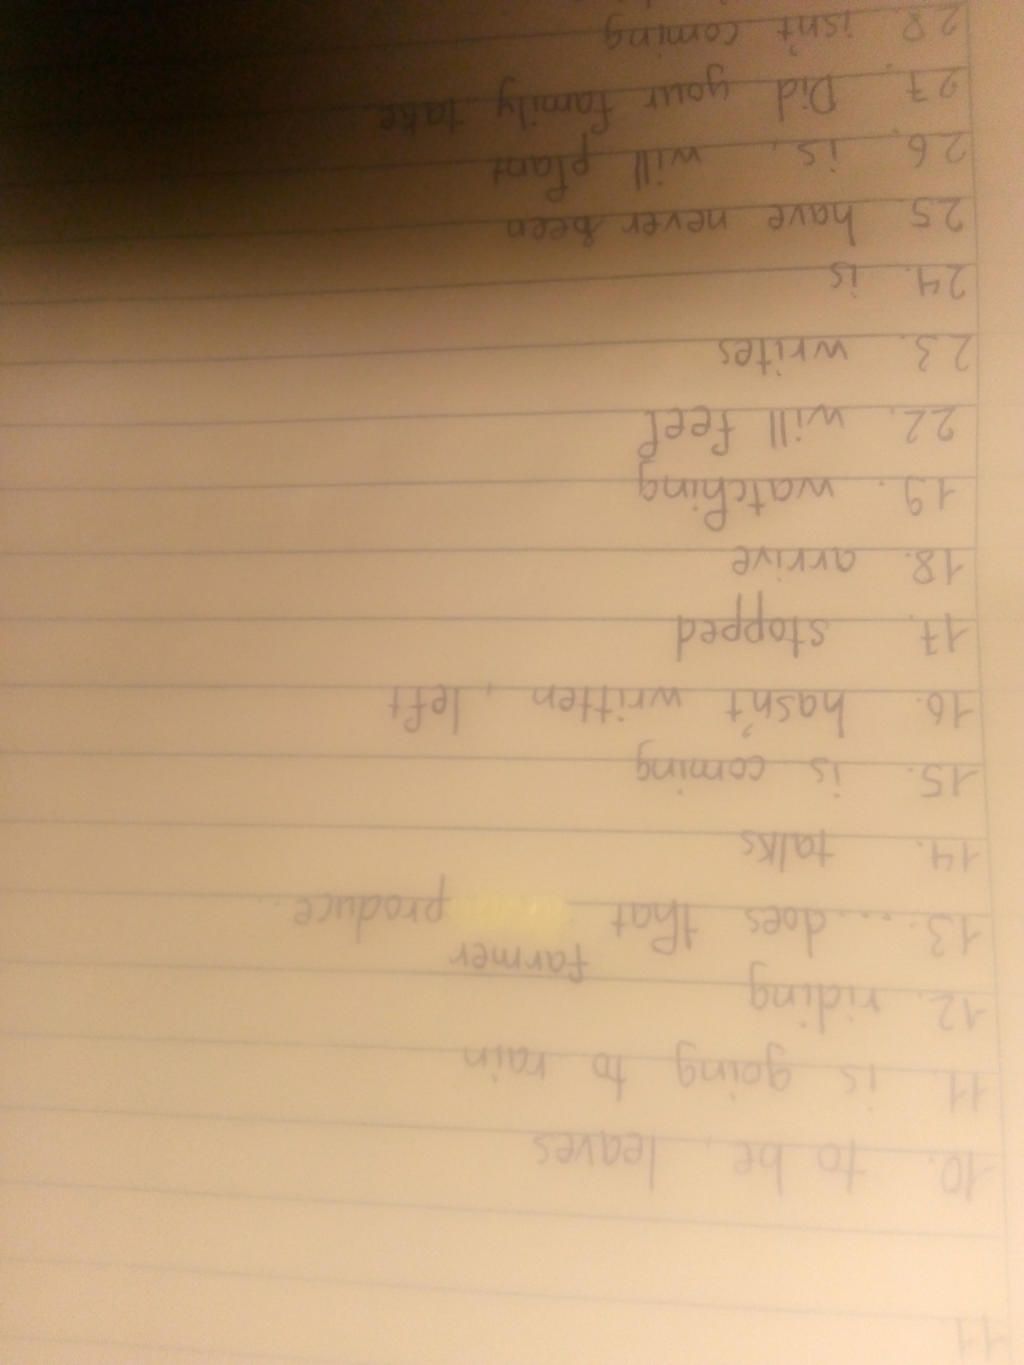 11.
10. to be, leaves
11. is going to rain
12. riding
farmer
13. ... does that produce..
14. talks
15. is coming
16. hasn't written, left
17. stopped
18. arrive
19. watching
22. will feel
23. writes
24. is
25. have never been
26. is, will plant
27. Did your family take
28. isn't coming